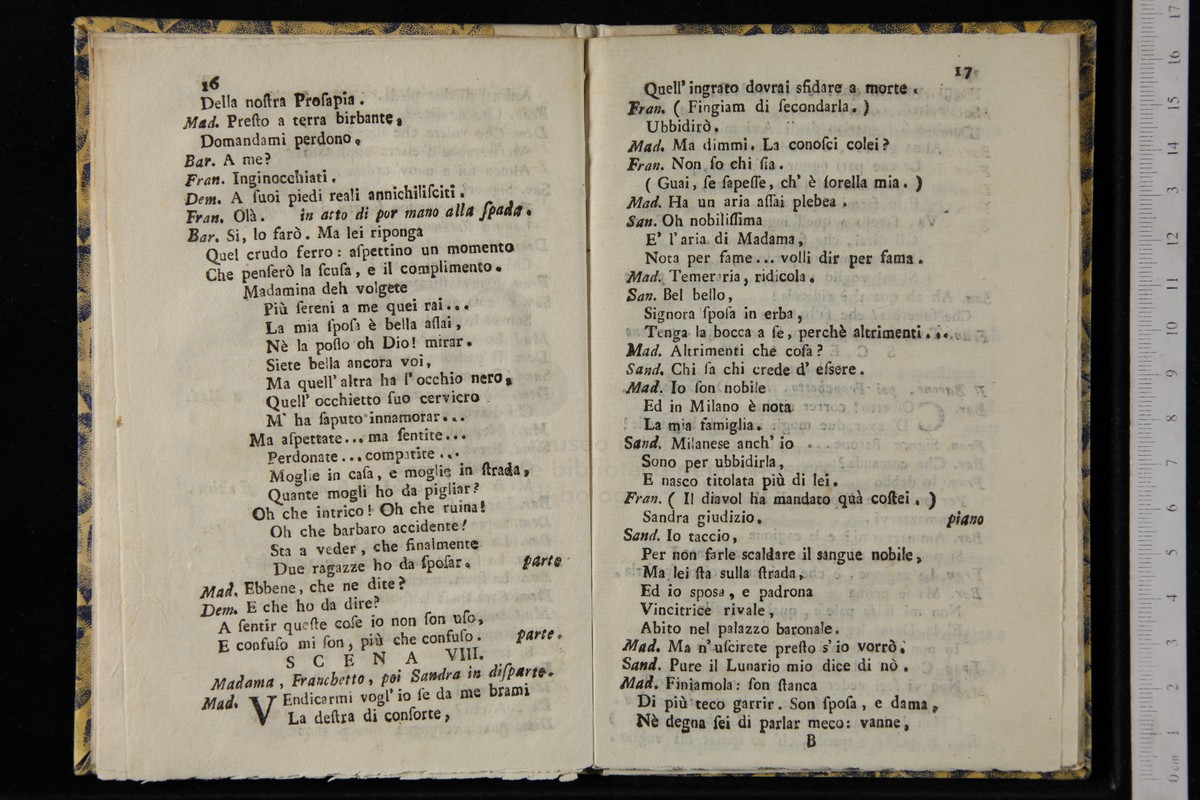 16
Della noſtra Proſapia.
Mad. Preſto a terra birbante,
Domandami perdono,
Bar. A me?
Fran. Inginocchiati.
Dem. A ſuoi piedi reali annichiliſciti.
Fran. Olà. in atto di por mano alla ſpada.
Bar. Si, lo farò. Ma lei riponga
Quel crudo ferro: aſpettino un momento
Che penſerò la ſcuſa, e il complimento.
Madamina deh volgete
Più ſereni a me quei rai...
La mia ſpoſa è bella aſſai,
Nè la poſſo oh Dio! mirar.
Siete bella ancora voi,
Ma quell' altra ha l' occhio nero,
Quell' occhietto ſuo cerviero
M' ha ſaputo innamorar...
Ma aſpettate... ma ſentite...
Perdonate... compatite...
Moglie in caſa, e moglie in ſtrada,
Quante mogli ho da pigliar?
Oh che intrico! Oh che ruina!
Oh che barbaro accidente!
Sta a veder, che finalmente
Due ragazze ho da ſpoſar. parte
Mad. Ebbene, che ne dite?
Dem. E che ho da dire?
A ſentir queſte coſe io non ſon uſo,
E confuſo mi ſon, più che confuſo. parte.
SCENA VIII.
Madama, Franchetto, poi Sandra in diſparte.
Mad. VEndicarmi vogl' io ſe da me brami
La deſtra di conſorte,
17
Quell' ingrato dovrai sfidare a morte.
Fran. ( Fingiam di ſecondarla. )
Ubbidirò.
Mad. Ma dimmi. La conoſci colei?
Fran. Non ſo chi ſia.
( Guai, ſe ſapeſſe, ch' è ſorella mia. )
Mad. Ha un aria aſſai plebea.
San. Oh nobiliſſima
E' l' aria di Madama,
Nota per fame... volli dir per fama.
Mad. Temeraria, ridicola.
San. Bel bello,
Signora ſpoſa in erba,
Tenga la bocca a ſe, perchè altrimenti...
Mad. Altrimenti che coſa?
Sand. Chi ſa chi crede d' eſsere.
Mad. Io ſon nobile
Ed in Milano è nota
La mia famiglia.
Sand. Milanese anch' io
Sono per ubbidirla,
E nasco titolata più di lei.
Fran. ( Il diavol ha mandato quà coſtei. )
Sandra giudizio. piano
Sand. Io taccio,
Per non farle scaldare il sangue nobile,
Ma lei ſta sulla ſtrada,
Ed io sposa, e padrona
Vincitrice rivale,
Abito nel palazzo baronale.
Mad. Ma n' uſcirete preſto s' io vorrò.
Sand. Pure il Lunario mio dice di nò.
Mad. Finiamola: ſon ſtanca
Di più teco garrir. Son ſpoſa, e dama,
Nè degna ſei di parlar meco: vanne,
B